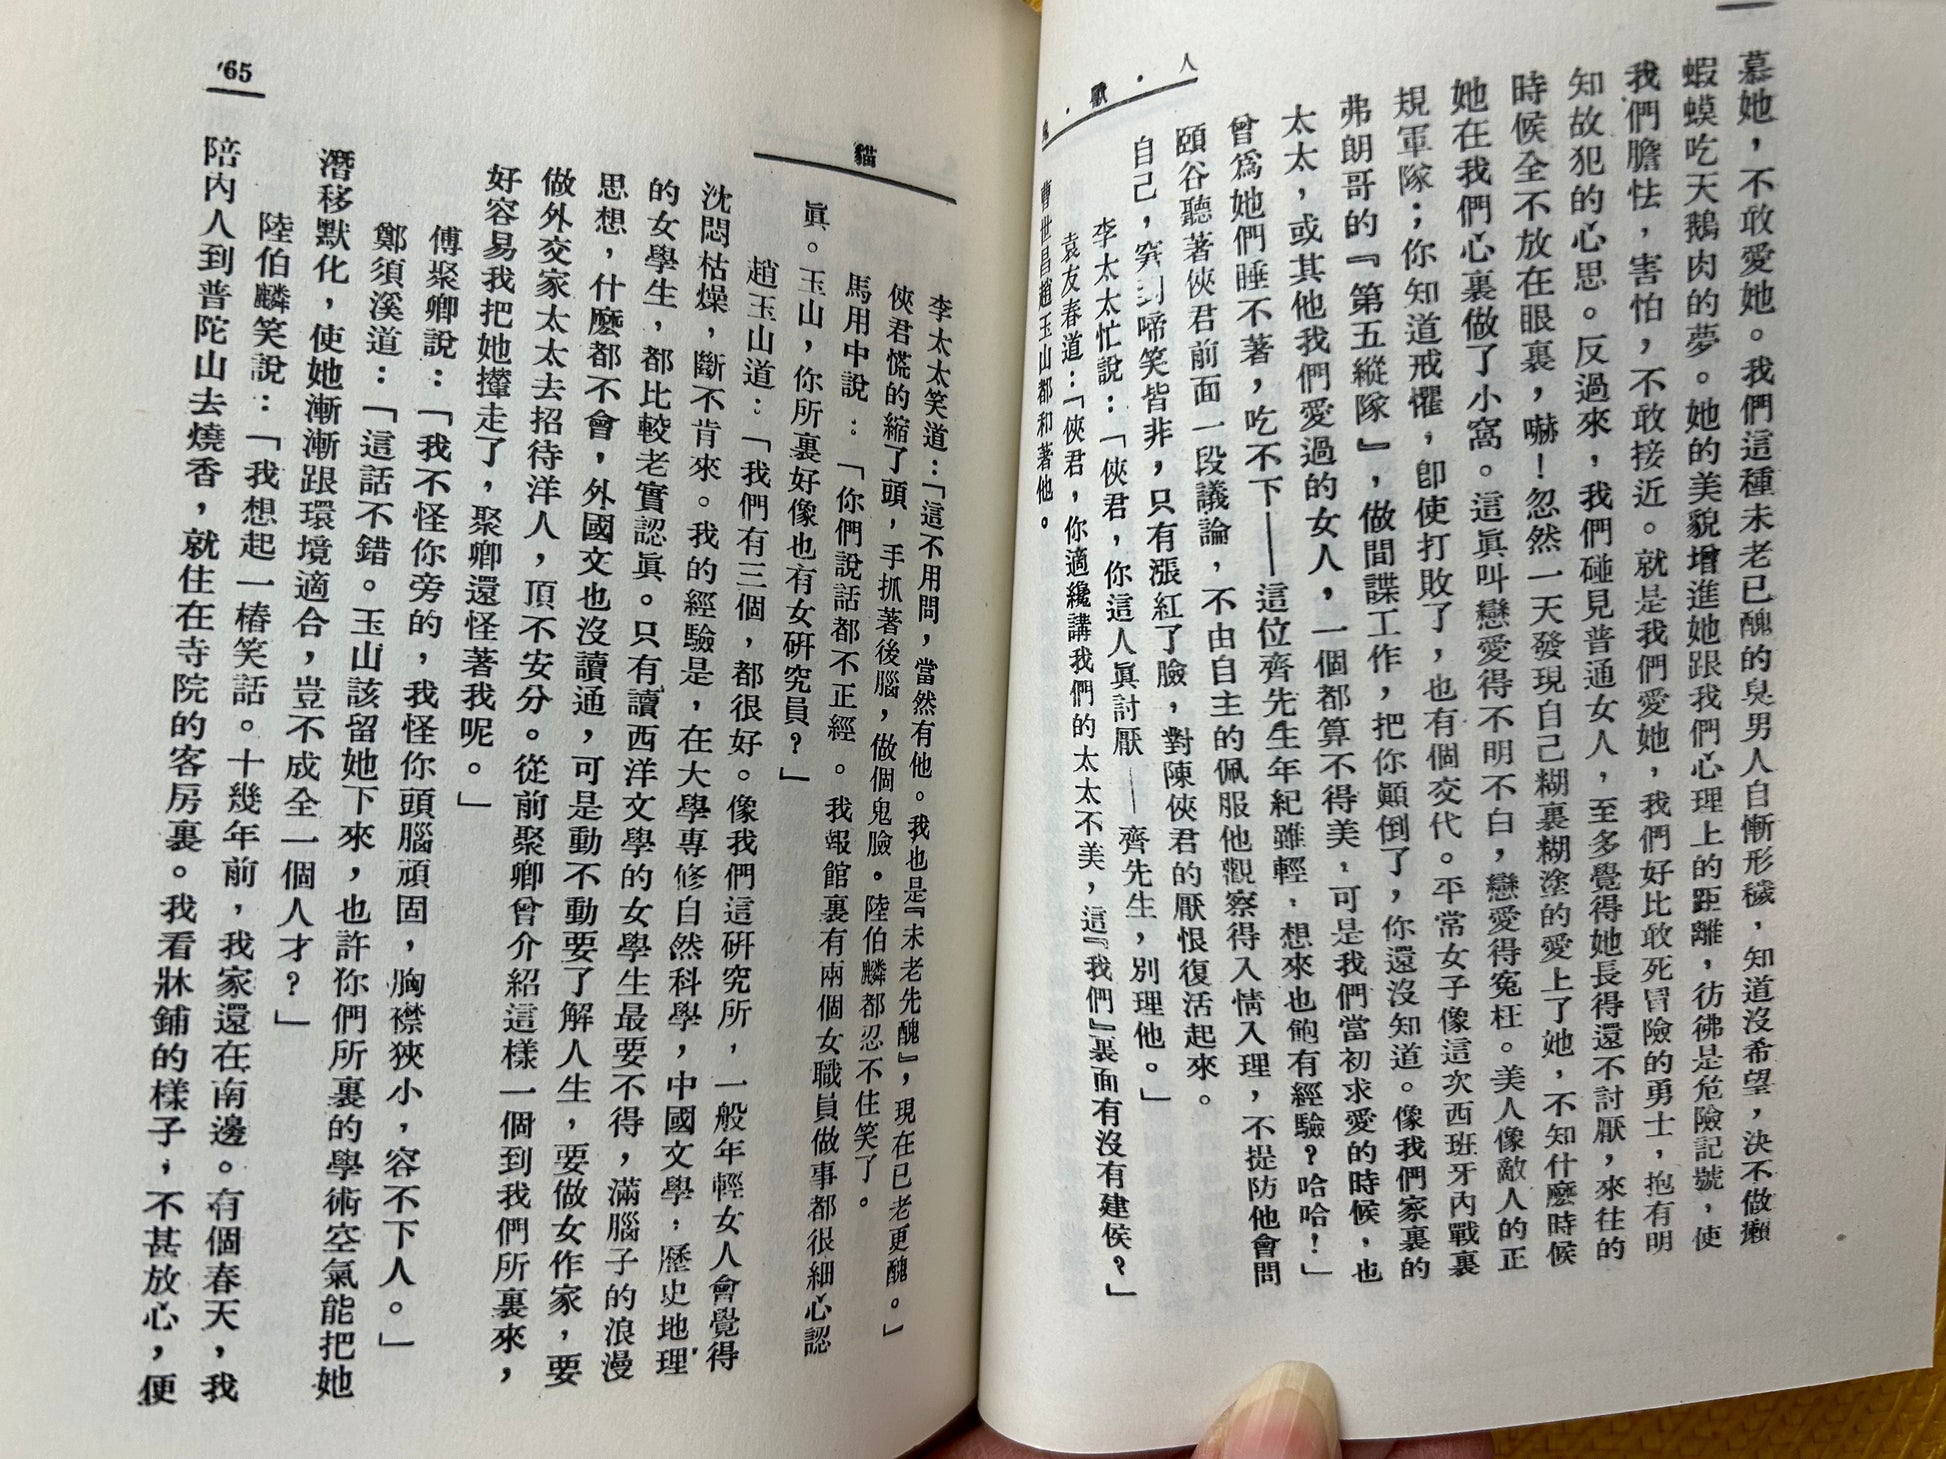 人・獸・鬼
慕她，不敢愛她。我們這種未老已醜的臭男人自慚形穢，知道沒希望，決不做癩
蝦蟆吃天鵝肉的夢。她的美貌增進她跟我們心理上的距離，彷彿是危險記號，使
我們膽怯，害怕，不敢接近。就是我們愛她，我們好比敢死冒險的勇士，抱有明
知故犯的心思。反過來，我們碰見普通女人，至多覺得她長得還不討厭，來往的
時候全不放在眼裏，嚇！忽然一天發現自己糊裏糊塗的愛上了她，不知什麼時候
她在我們心裏做了小窩。這眞叫戀愛得不明不白，戀愛得冤枉。美人像敵人的正
規軍隊；你知道戒懼，卽使打敗了，也有個交代。平常女子像這次西班牙內戰裏
弗朗哥的『第五縱隊』，做間諜工作，把你顚倒了，你還沒知道。像我們家裏的
太太，或其他我們愛過的女人，一個都算不得美，可是我們當初求愛的時候，也
曾爲她們睡不著，吃不下——這位齊先生年紀雖輕，想來也飽有經驗？哈哈！」
頤谷聽著俠君前面一段議論，不由自主的佩服他觀察得入情入理，不提防他會問
自己，窘到啼笑皆非，只有漲紅了臉，對陳俠君的厭恨復活起來。
李太太忙說：「俠君，你這人眞討厭——齊先生，別理他。」
袁友春道：「俠君，你適纔講我們的太太不美，這『我們』裏面有沒有建侯？」
曹世昌趙玉山都和著他。
貓
李太太笑道：「這不用問，當然有他。我也是『未老先醜』，現在已老更醜。」
俠君慌的縮了頭，手抓著後腦，做個鬼臉。陸伯麟都忍不住笑了。
馬用中說：「你們說話都不正經。我報館裏有兩個女職員做事都很細心認
眞。玉山，你所裏好像也有女研究員？」
趙玉山道：「我們有三個，都很好。像我們這研究所，一般年輕女人會覺得
沈悶枯燥，斷不肯來。我的經驗是，在大學專修自然科學，中國文學，歷史地理
的女學生，都比較老實認眞。只有讀西洋文學的女學生最要不得，滿腦子的浪漫
思想，什麼都不會，外國文也沒讀通，可是動不動要了解人生，要做女作家，要
做外交家太太去招待洋人，頂不安分。從前聚卿曾介紹這樣一個到我們所裏來，
好容易我把她攆走了，聚卿還怪著我呢。」
傅聚卿說：「我不怪你旁的，我怪你頭腦頑固，胸襟狹小，容不下人。」
鄭須溪道：「這話不錯。玉山該留她下來，也許你們所裏的學術空氣能把她
潛移默化，使她漸漸跟環境適合，豈不成全一個人才？」
陸伯麟笑說：「我想起一樁笑話。十幾年前，我家還在南邊。有個春天，我
陪內人到普陀山去燒香，就住在寺院的客房裏。我看牀鋪的樣子，不甚放心，便
65